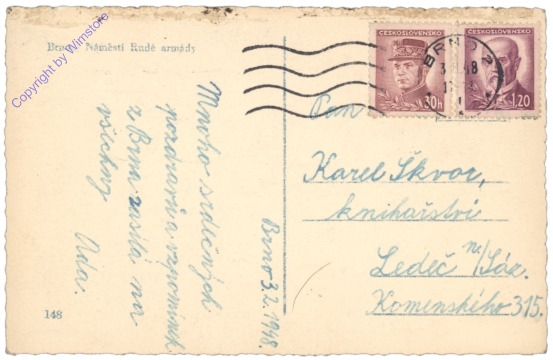 Brno, Náměstí Rudé armády
Copyright by Wimstore
ČESKOSLOVENSKO
30h
ČESKOSLOVENSKO
1.20
BRNO 2
48
Mnoho srdečných
pozdravů a vzpomínek
z Brna zasílá na
všechny Ada.
Brno 3.2.1948
Pan
Karel Škvor,
knihařství
Ledeč n/Sáz.
Komenského 315.
148